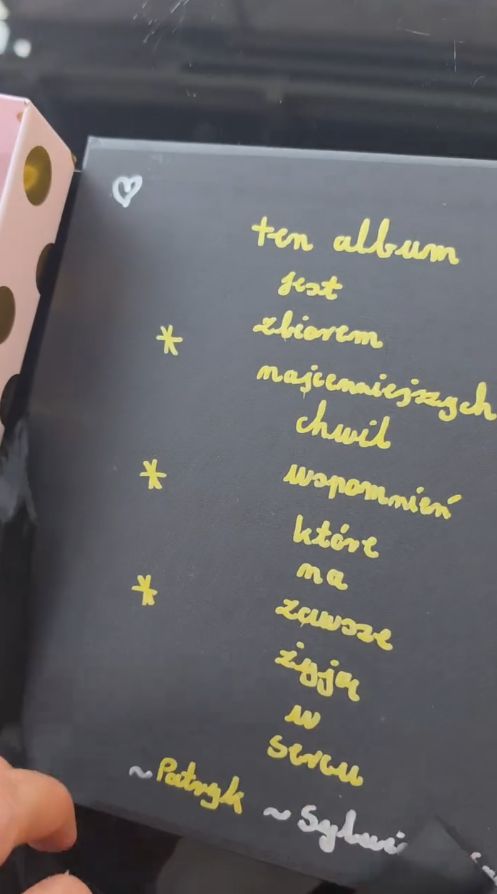 ten album
jest
zbiorem
najcenniejszych
chwil
wspomnień
które
na
zawsze
żyją
w
sercu
~Patryk ~Sylwi